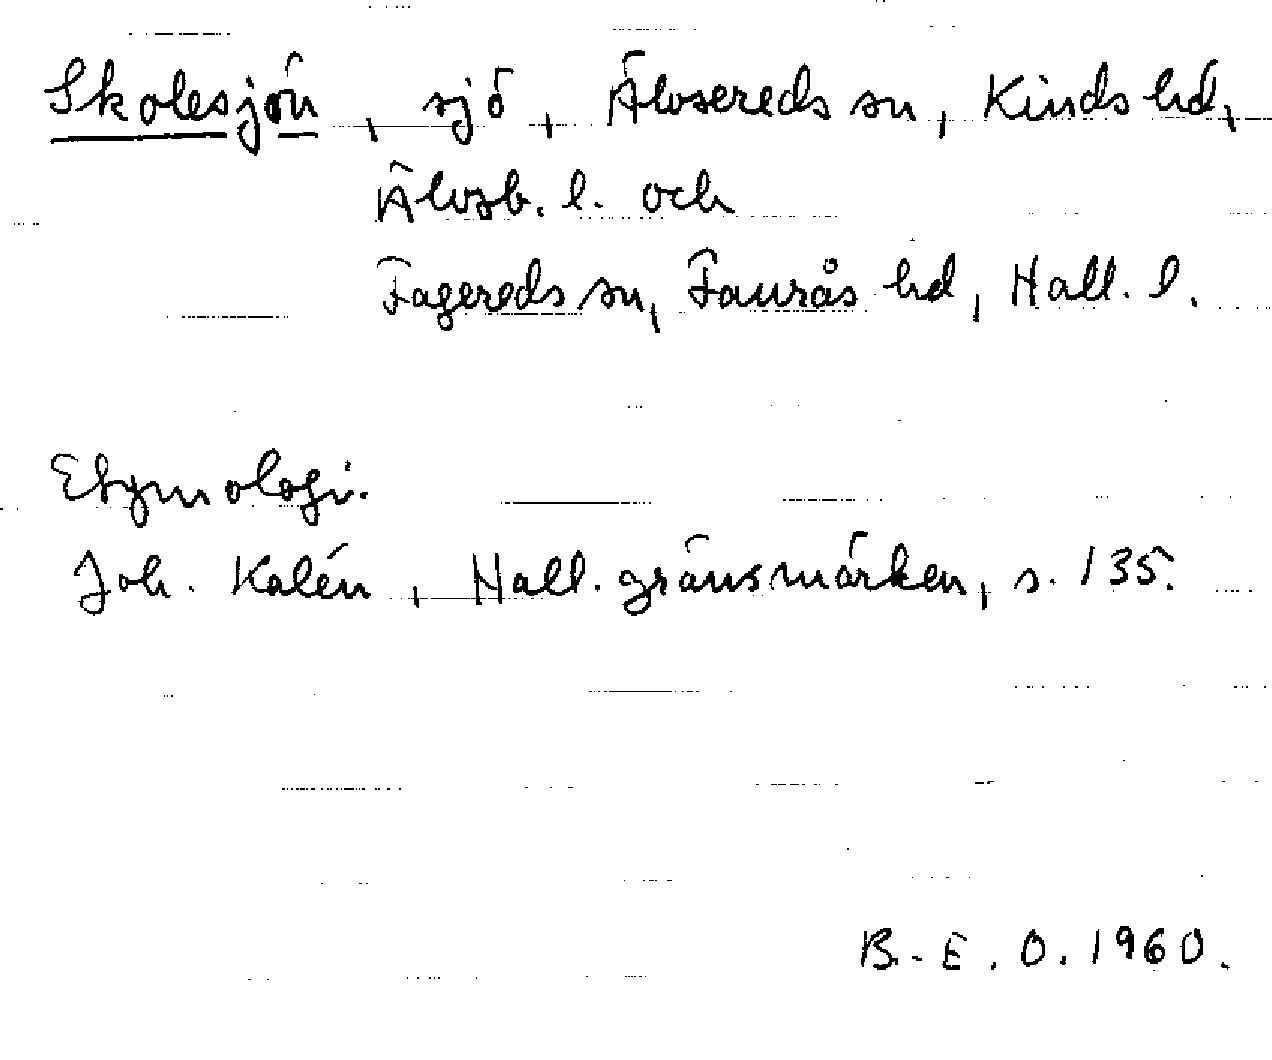 Skolesjön, sjö, Älvsereds sn, Kinds hd,
Älvsb. l. och
Fagereds sn, Faurås hd, Hall. l.
Etymologi.
Joh. Kalén, Hall. gränsmärken, s. 135.
B.-E. O. 1960.